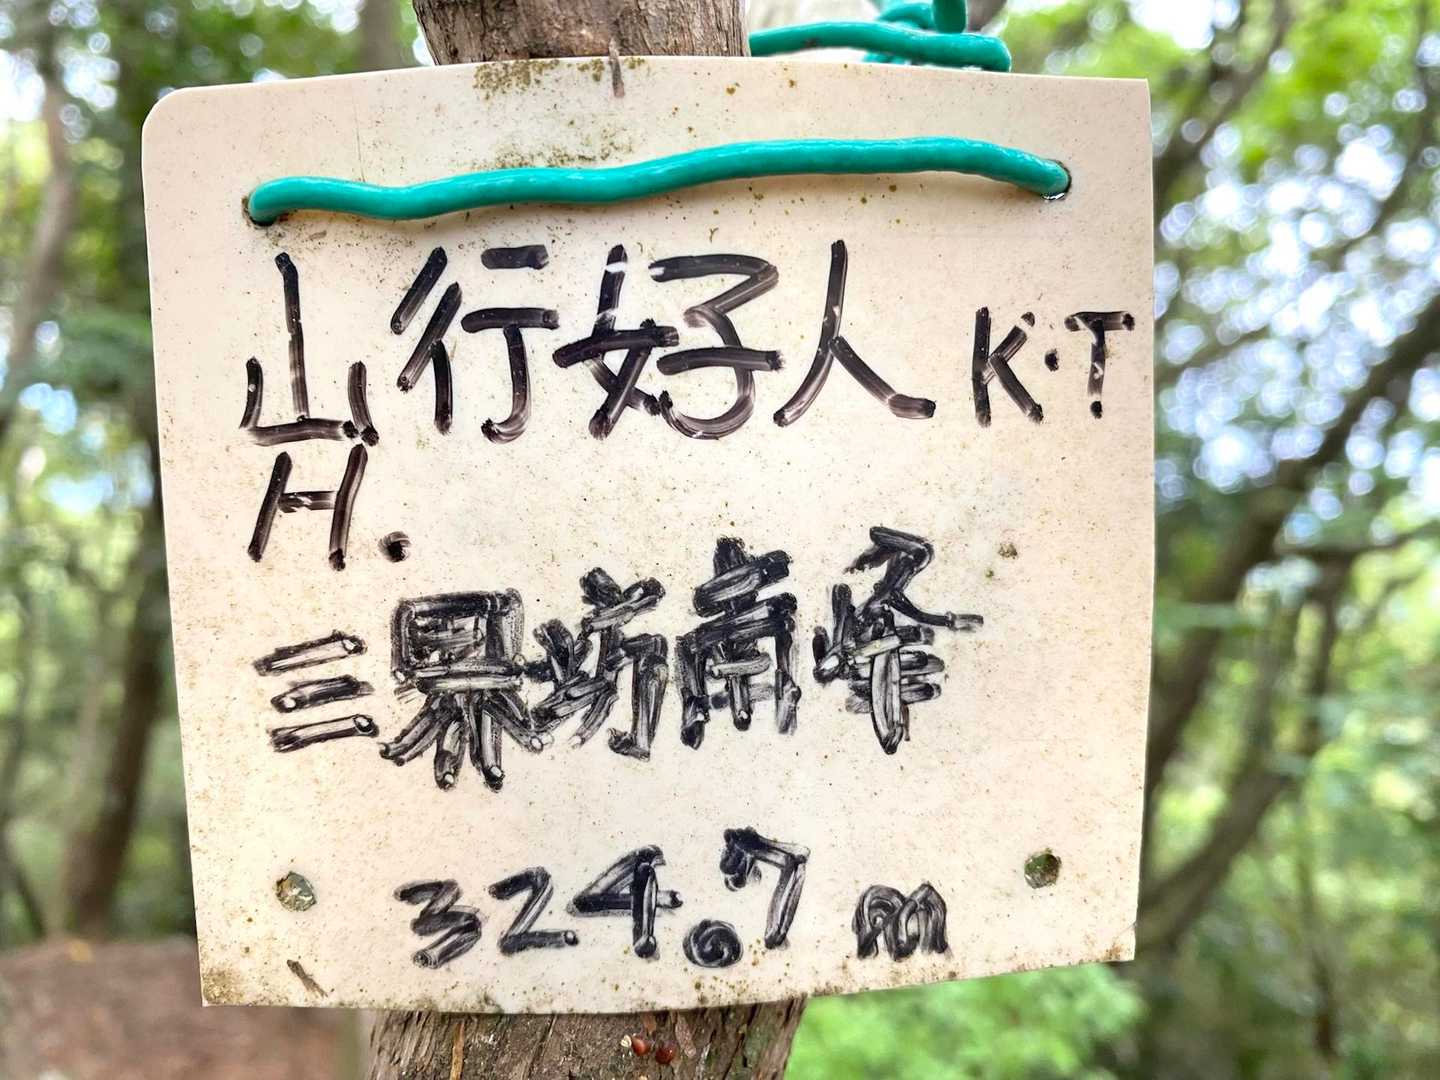 山行好人 K.T
H.
三界坊南峰
324.7m